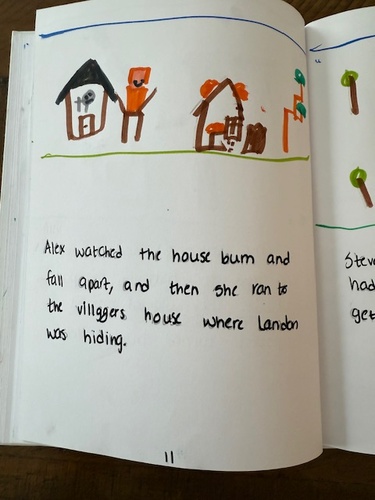 Alex watched the house burn and
fall apart, and then she ran to
the villggers house where Landon
was hiding.
11
Steve
had
get